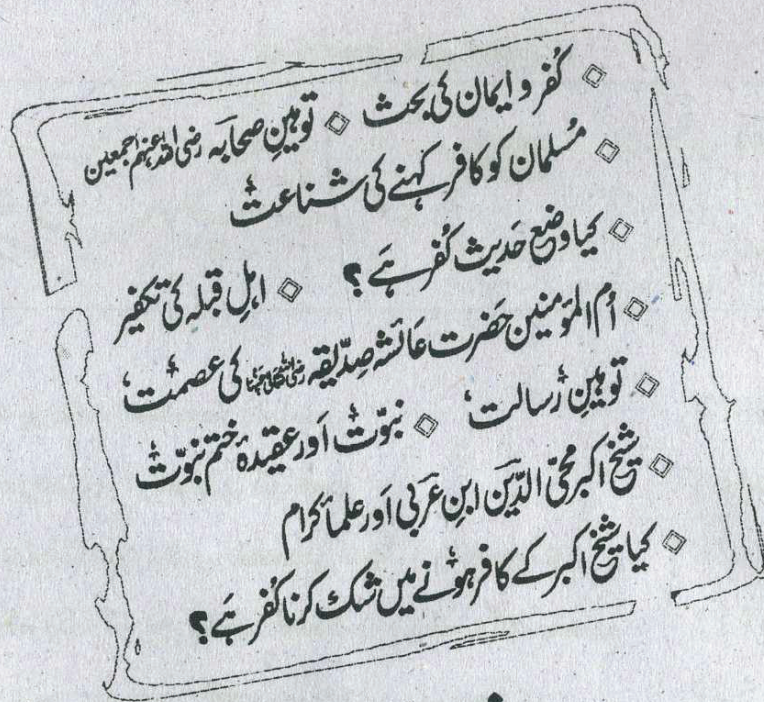 ◇ کُفر و ایمان کی بحث ◇ توہینِ صحابہ رضی اللہ عنہم اجمعین
◇ مُسلمان کو کافر کہنے کی شناعت
◇ کیا وضعِ حَدیث کُفر ہَے ؟ ◇ اہلِ قبلہ کی تکفیر
◇ اُم المؤمنین حَضرت عَائشہ صِدّیقہ رضی اللہ عنہا کی عصمت،
◇ توہینِ رسالت، ◇ نبوّت اَور عقیدۂ ختم نبوّت
◇ شیخ اکبر محیّ الدّین ابنِ عَربی اَور علماَئکرام
◇ کیا شیخ اکبر کے کافر ہونے میں شک کرنا کُفر ہَے ؟